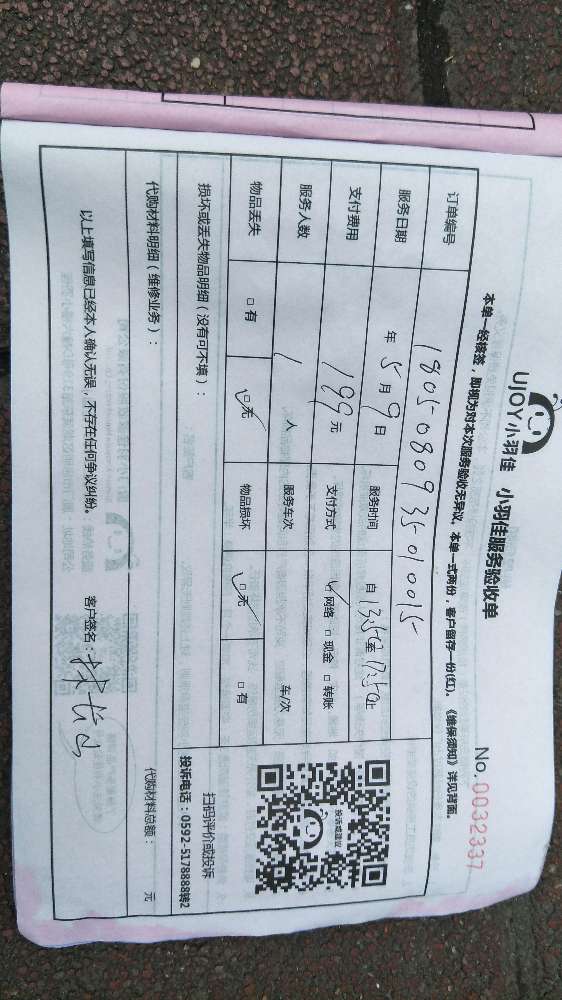 UJOY小羽佳 小羽佳服务验收单
No. 0032337
本单一经核签，即视为对本次服务验收无异议。本单一式两份，客户留存一份(红)。《维保须知》详见背面。
订单编号 1805080935010015
服务日期 年 5 月 9 日 服务时间 自 13:50 至 17:50 止
支付费用 199 元 支付方式 ☑网络 □现金 □转账
服务人数 1 人 服务车次 车/次
物品丢失 □有 ☑无 物品损坏 ☑无 □有
投诉或建议
扫码评价或投诉
投诉电话：0592-5178888转2
损坏或丢失物品明细（没有可不填）：
代购材料明细（维修业务）：
代购材料总额： 元
以上填写信息已经本人确认无误，不存在任何争议纠纷。 客户签名：